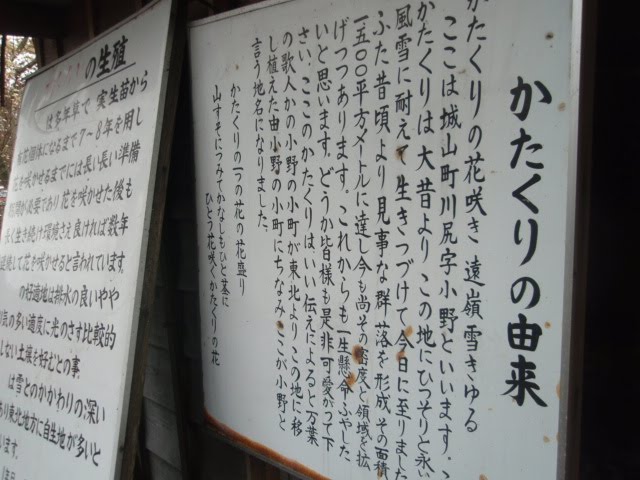 かたくりの由来
かたくりの花咲き 遠嶺雪きゆる
ここは城山町川尻字小野といいます。
かたくりは大昔より この地にひっそりと永い
風雪に耐えて 生きつづけて 今日に至りました
ふた昔頃より 見事な群落を形成 その面積
一五〇〇平方メートルに達し 今も尚その密度と領域を拡
げつつあります。これからも一生懸命ふやした
いと思います。どうか皆様も是非可愛がって下
さい。ここのかたくりは、いい伝えによると万葉
の歌人かの小野の小町が東北より、この地に移
し植えた由 小野の小町にちなみ、ここが小野と
言う地名になりました。
かたくりの一つの花の花盛り
山すそにつみてかなしもひと茎に
ひとつ花咲くかたくりの花
の生殖
は多年草で 実生苗から
開花個体になるまで7〜8年を用し
花を咲かせるまでには長い長い準備
期間が必要であり 花を咲かせた後も
永く生き続け環境さえ良ければ数年
連続して花を咲かせると言われています。
の好適地は排水の良いやや
気の多い適度に光のさす比較的
しない土壌を好むとの事。
は雪とのかかわりの深い
あり東北地方に自生地が多いと
います。